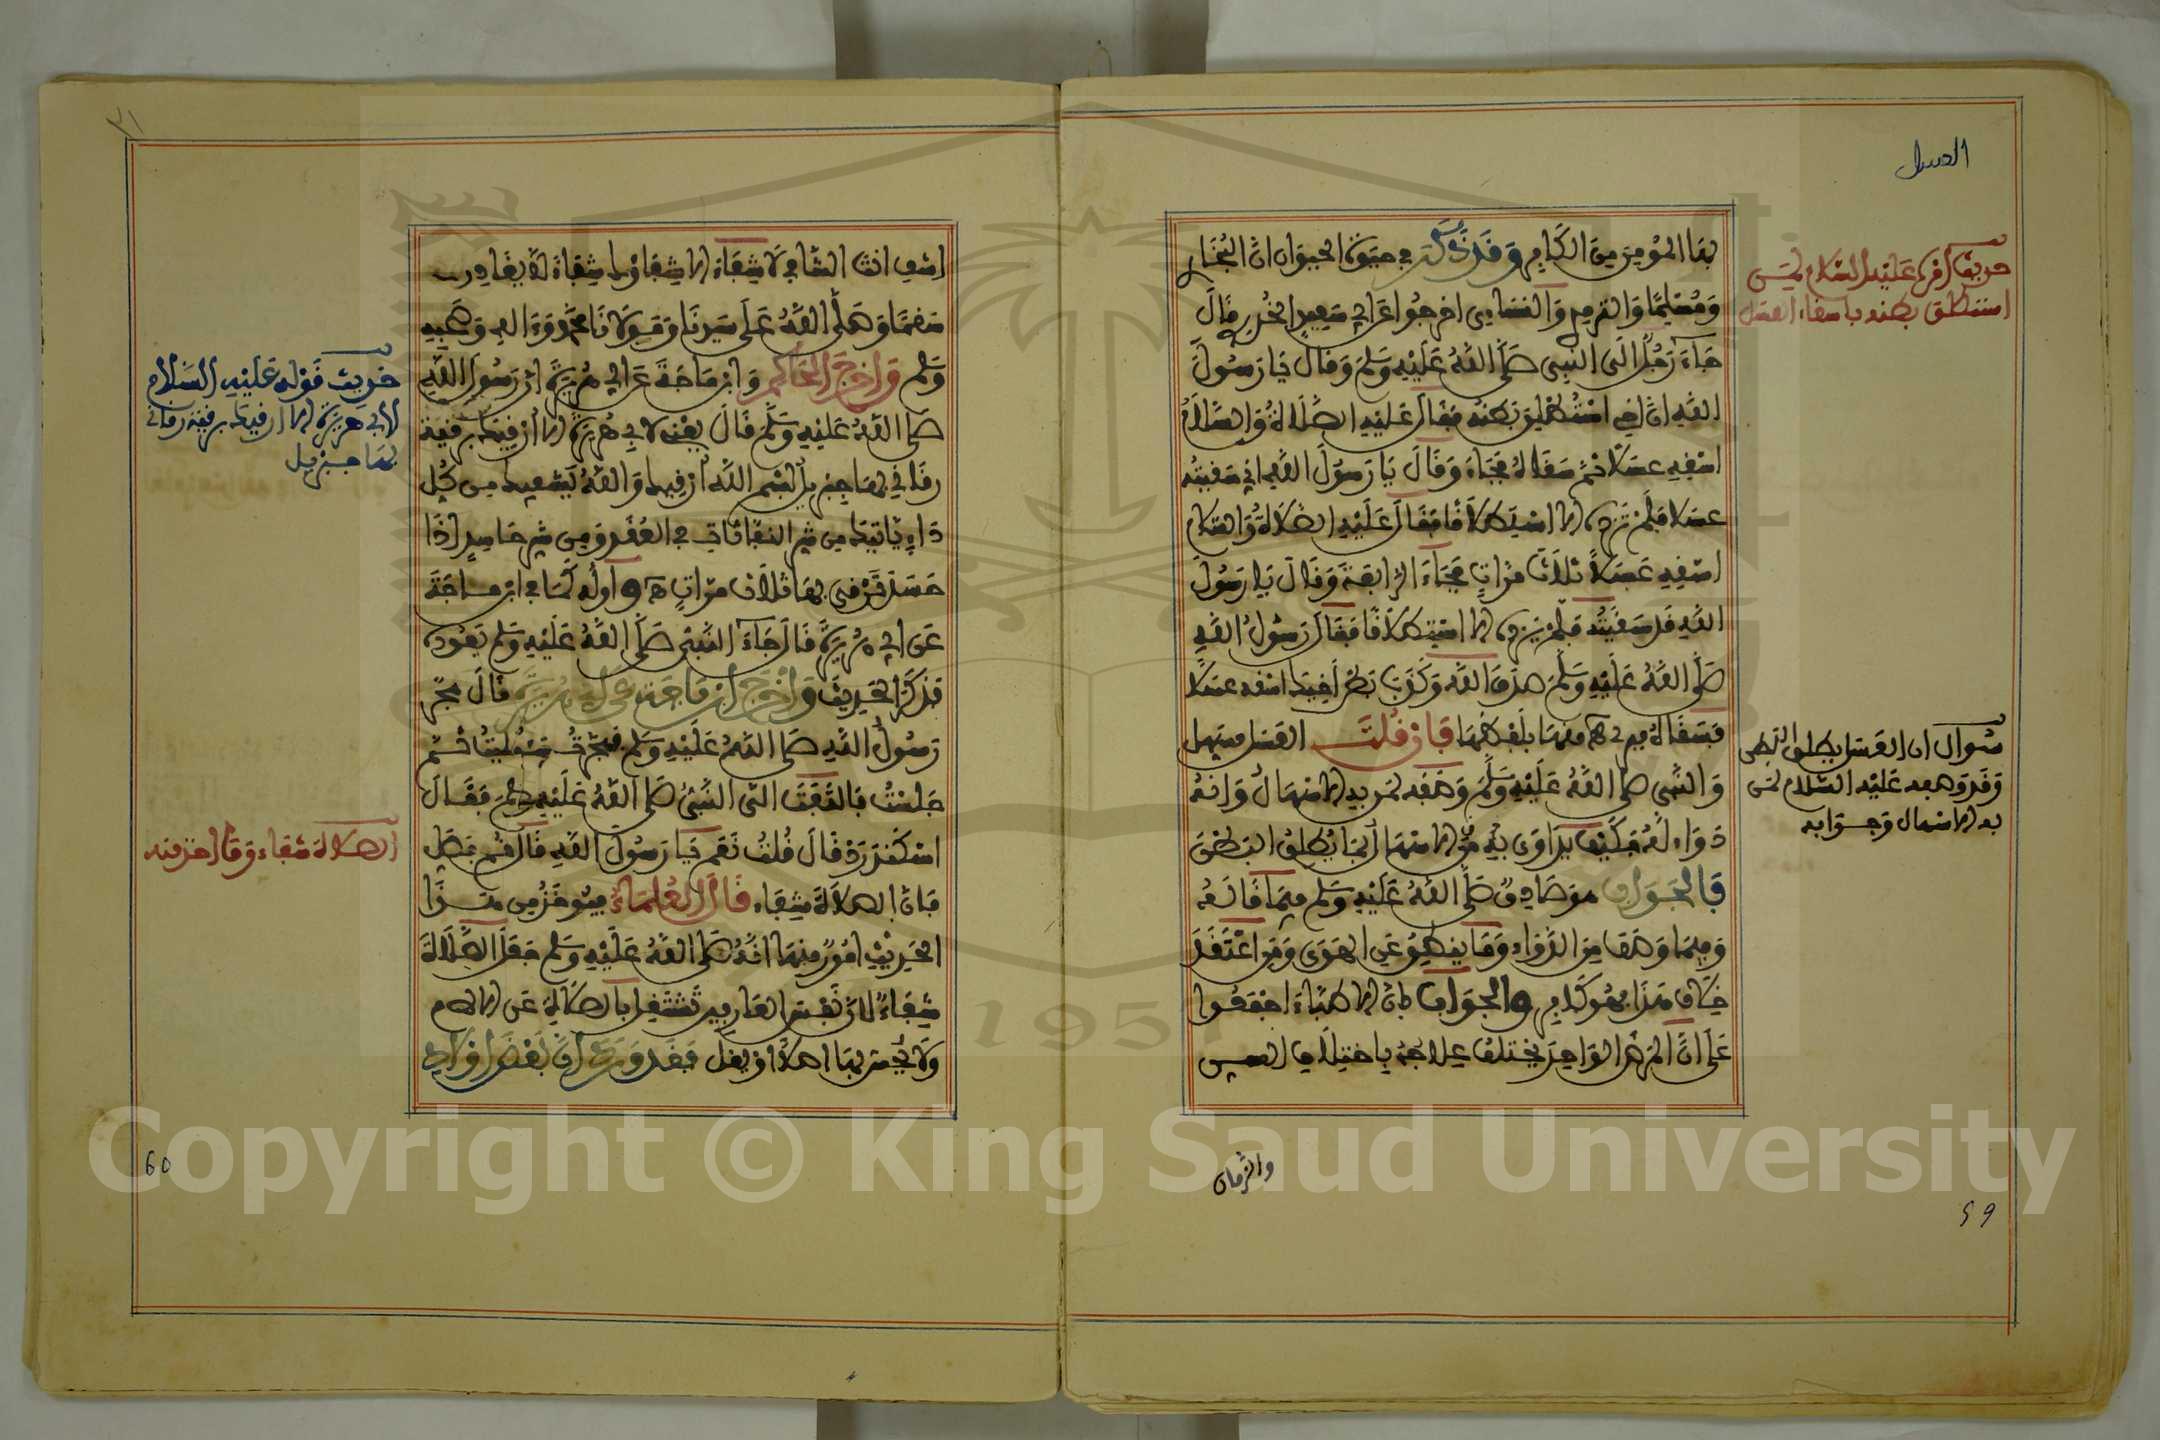 العسل
بها المؤمن من الكافر وقد ذكر في حيوة الحيوان ان البخاري
ومسلما والترمذي والنسائي اخرجوا عن ابي سعيد الخدري قال
جاء رجل الى النبيء صلى الله عليه وسلم وقال يا رسول
الله ان اخي استطلق بطنه فقال عليه الصلاة والسلام
اسقه عسلا ثم سقاه فجاء وقال يا رسول الله اني سقيته
عسلا فلم يزده الا استطلاقا فقال عليه الصلاة والسلام
اسقه عسلا ثلاث مرات فجاء الرابعة وقال يا رسول
الله قد سقيته فلم يزده الا استطلاقا فقال رسول الله
صلى الله عليه وسلم صدق الله وكذب بطن اخيك اسقه عسلا
فسقاه فبرئ هـ منهما بلفظهما فان قلت العسل مسهل
والنبي صلى الله عليه وسلم وصفه لمن به الاسهال وانه
دواء له فكيف يداوى به من الاسهال انما يطلق البطن
فالجواب هو صادق صلى الله عليه وسلم فيما قاله
وفيما وصف من الدواء وما ينطق عن الهوى ومن اعتقد
خلاف هذا فهو كافر والجواب بان الاطباء اجمعوا
على ان المرض الواحد يختلف علاجه باختلاف السن
حديث اخر عليه السلام لمن
استطلق بطنه باسقاء العسل
سؤال ان العسل يطلق البطن
وقد وصفه عليه السلام لمن
به الاسهال وجوابه
والزمان
59
٣١
اشف انت الشافي لا شفاء الا شفاؤك شفاء لا يغادر
سقما وصلى الله على سيدنا ومولانا محمد وءاله وصحبه
وسلم واخرج الحاكم وابن ماجة عن ابي هريرة ان رسول الله
صلى الله عليه وسلم قال يعني لابي هريرة الا ارقيك برقية
رقاني بها جبريل بسم الله ارقيك والله يشفيك من كل
داء ياتيك من شر النفاثات في العقد ومن شر حاسد اذا
حسد ترقي بها ثلاث مرات هـ واوله كما في ابن ماجة
عن ابي هريرة قال جاء النبي صلى الله عليه وسلم يعودني
فذكر الحديث واخرج ابن ماجة عن ابي هريرة قال هجر
رسول الله صلى الله عليه وسلم فهجرت فصليت ثم
جلست فالتفت الي النبي صلى الله عليه وسلم فقال
اشكنب درد قال قلت نعم يا رسول الله قال قم فصل
فان الصلاة شفاء قال العلماء فيؤخذ من هذا
الحديث امور منها انه صلى الله عليه وسلم جعل الصلاة
شفاء لان نفس العارف تشتغل بالصلاة عن الالم
ولا يحس بها اصلا او يقل فقد ورد ان بعض اولاد
حديث قوله عليه السلام
لابي هريرة الا ارقيك برقية رقاني
بها جبريل
الصلاة شفاء وما اخذ منه
60
1957
Copyright © King Saud University